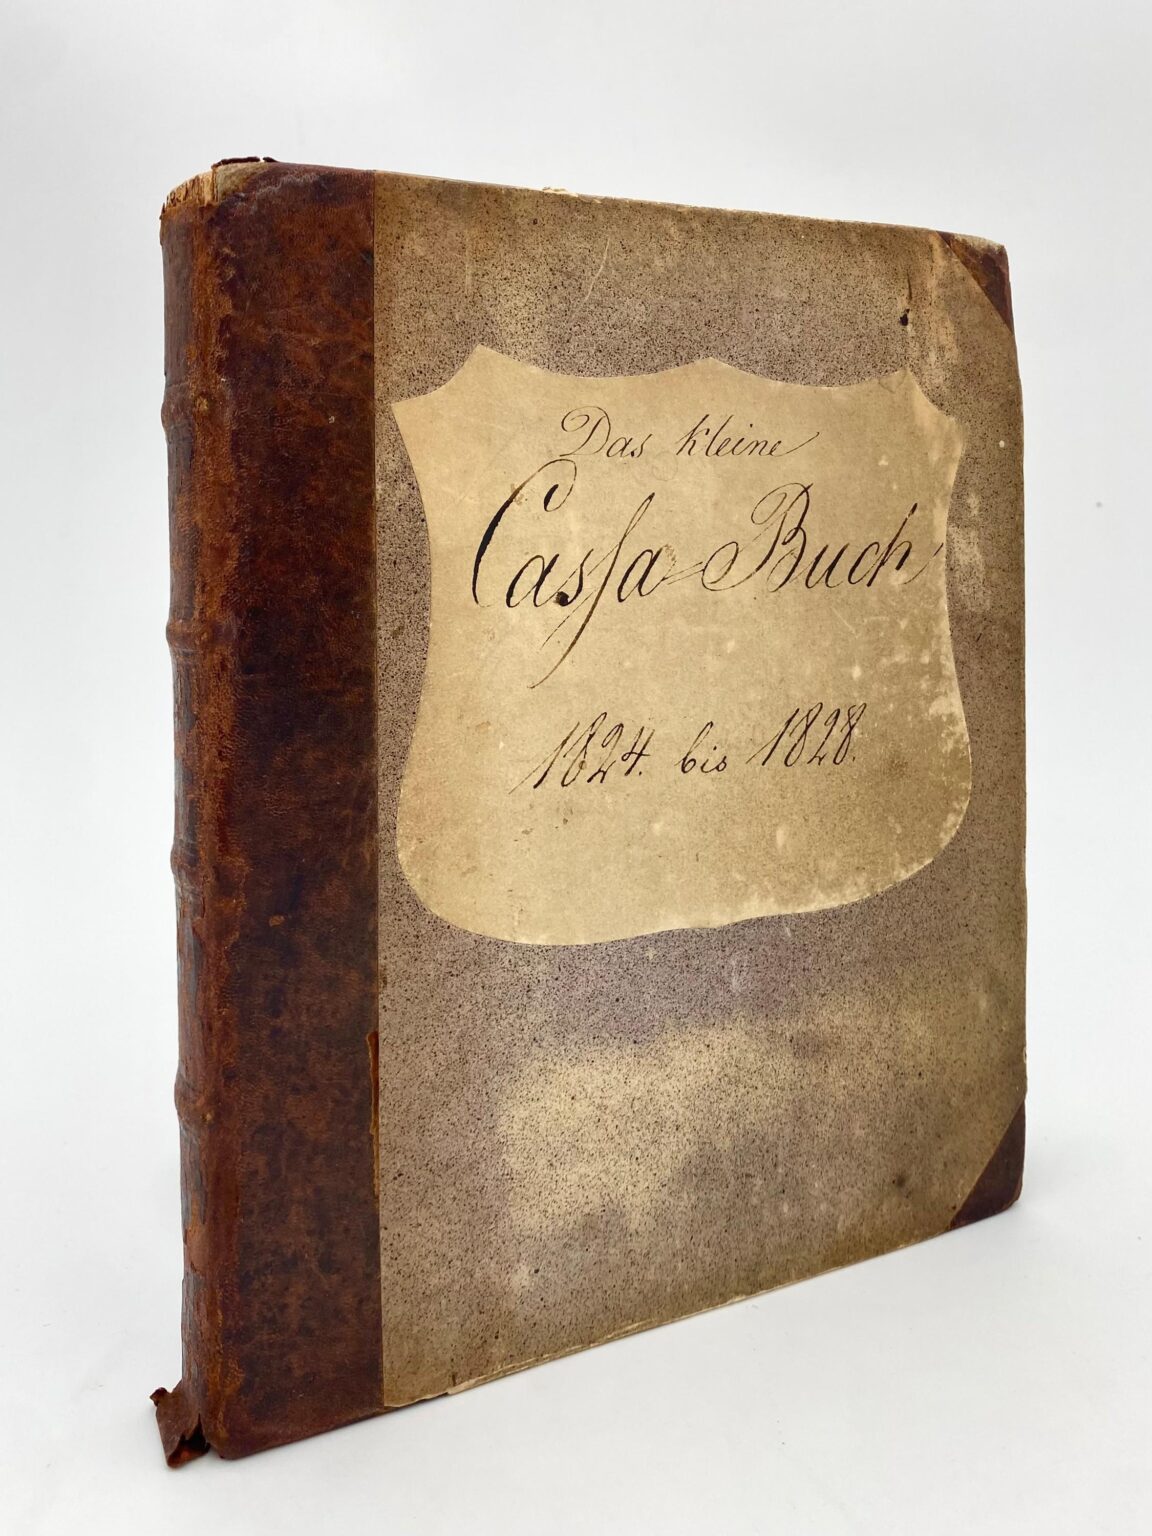 Das kleine
Casſa-Buch
1824. bis 1828.